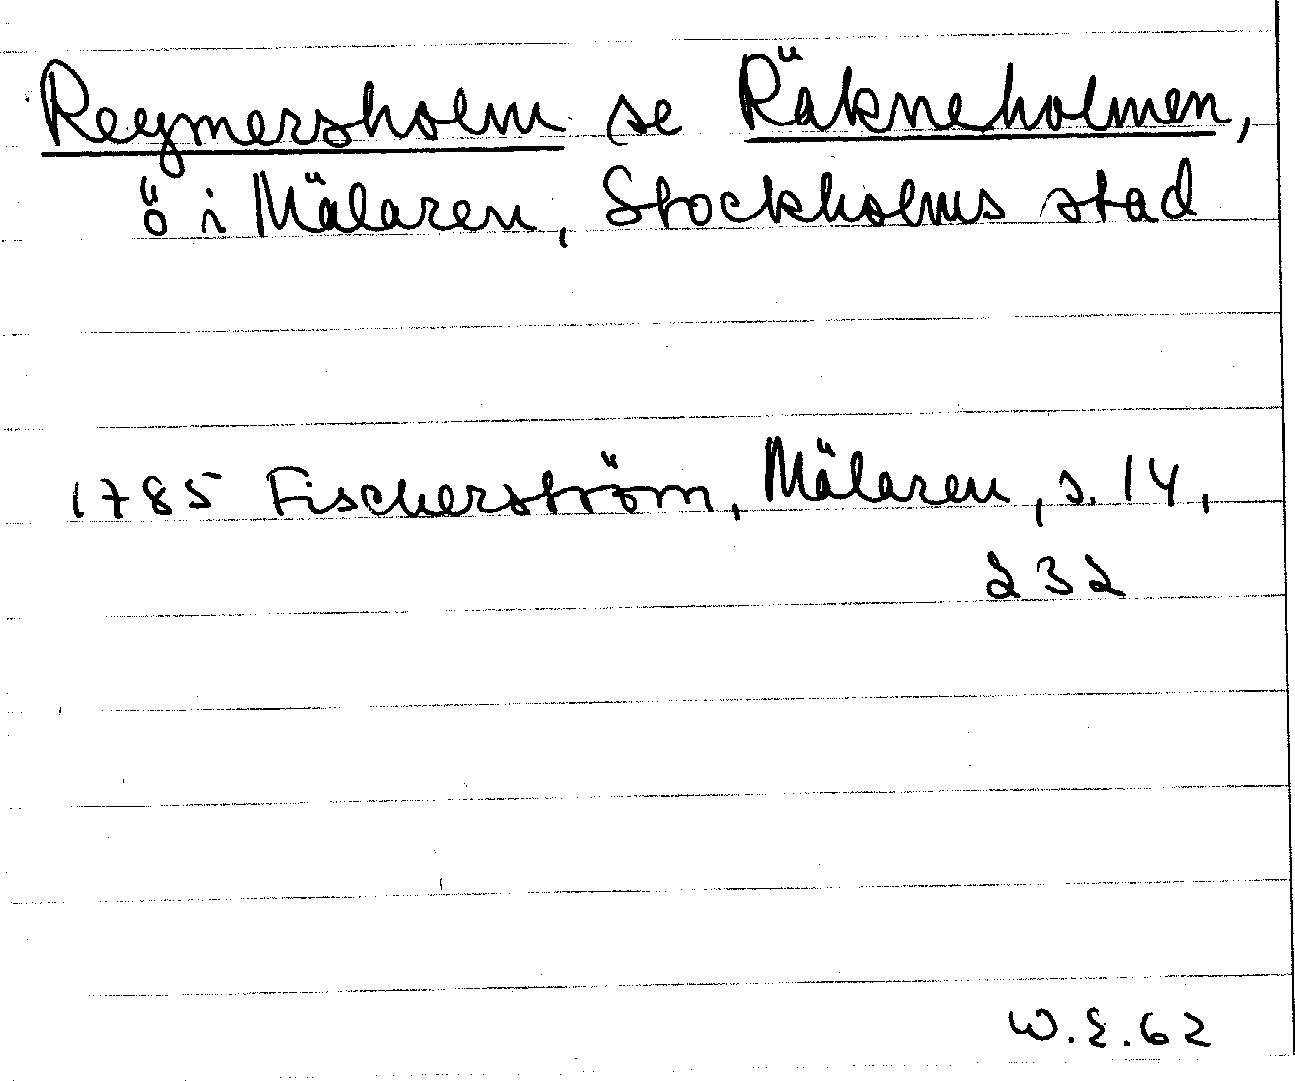 Reymersholm se Räkneholmen,
ö i Mälaren, Stockholms stad
1785 Fischerström, Mälaren, s. 14,
232
W.E.62